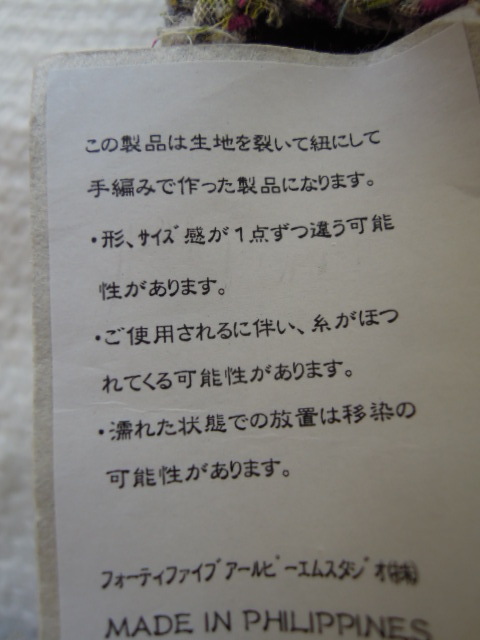 この製品は生地を裂いて紐にして
手編みで作った製品になります。
・形、サイズ感が1点ずつ違う可能
性があります。
・ご使用されるに伴い、糸がほつ
れてくる可能性があります。
・濡れた状態での放置は移染の
可能性があります。
フォーティファイブアールピーエムスタジオ(株)
MADE IN PHILIPPINES